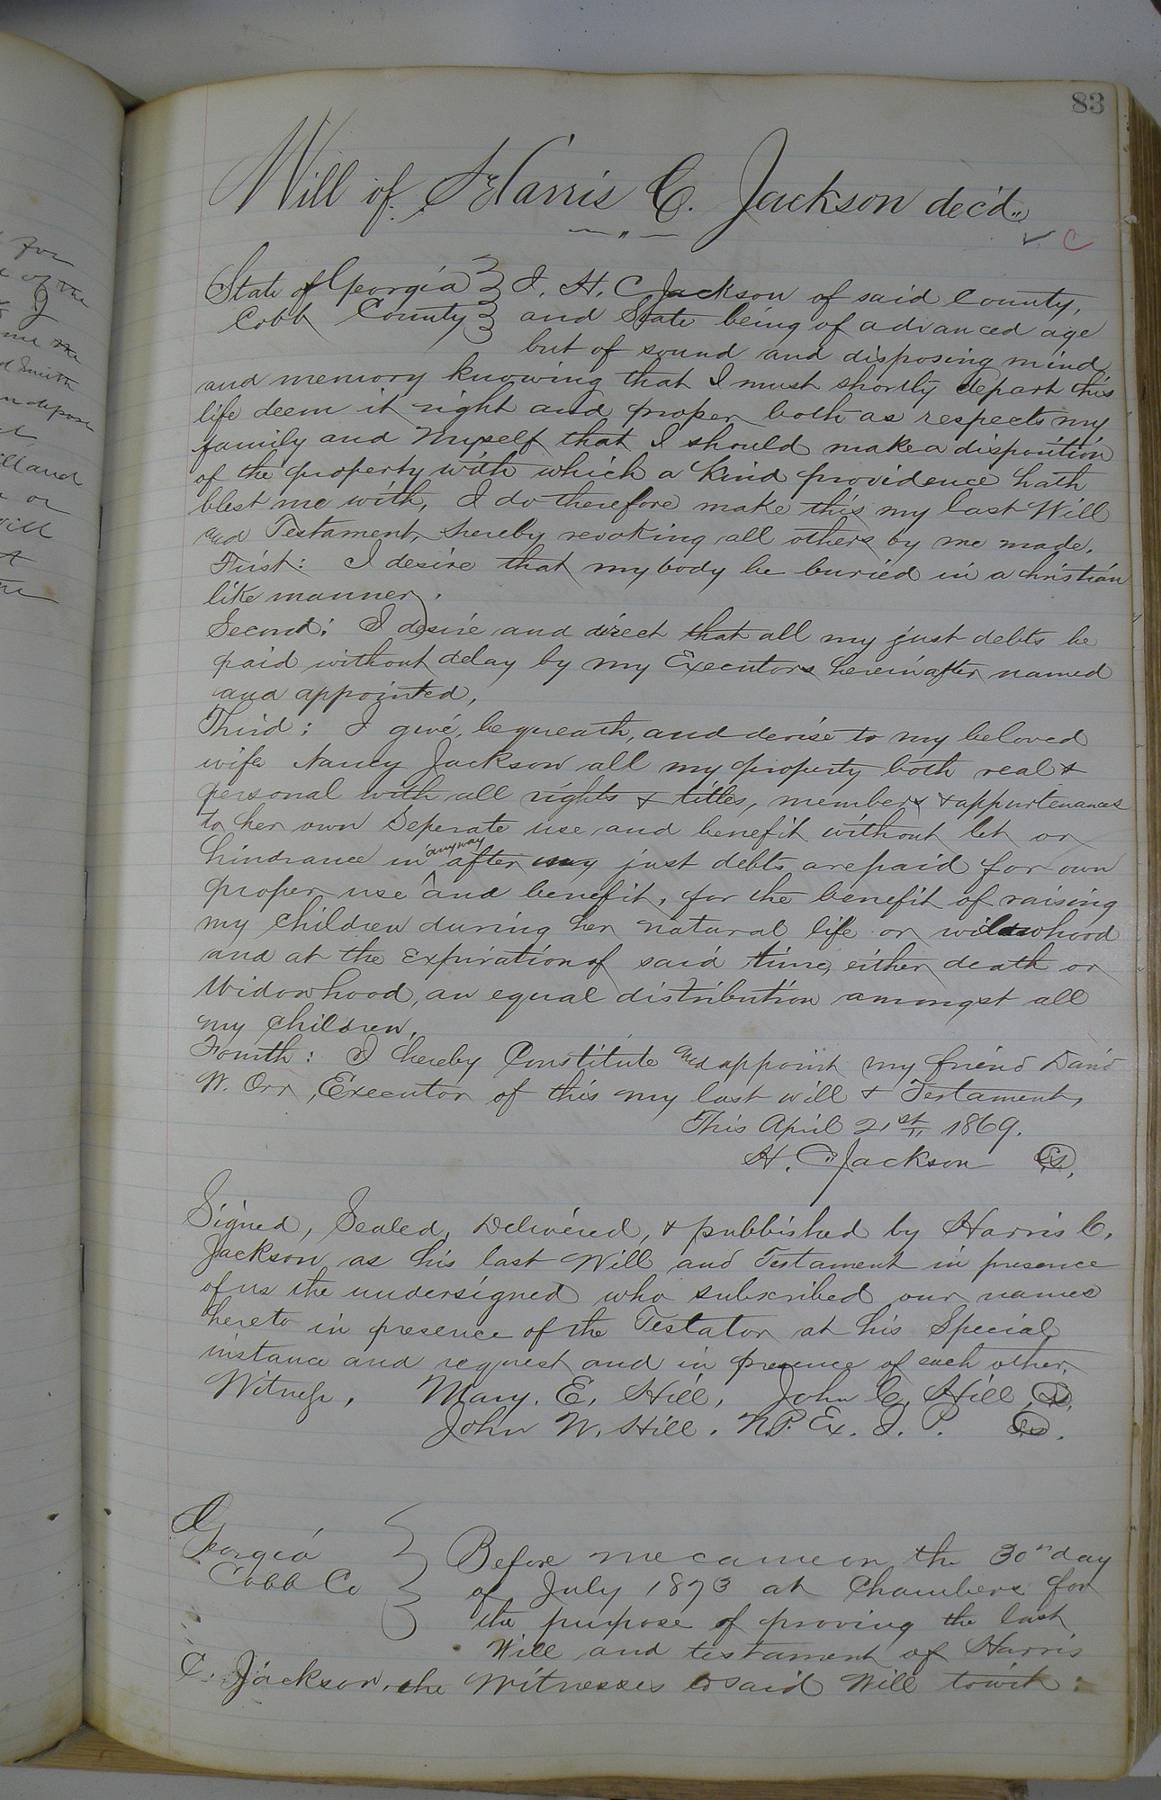 for
of the
J
me
Smith
indepose
and
or
will
83
Will of Harris C. Jackson dec'd"
C
State of Georgia } I, H. C Jackson of said County,
Cobb County } and State being of advanced age
but of sound and disposing mind
and memory knowing that I must shortly depart this
life deem it right and proper both as respects my
family and myself that I should make a disposition
of the property with which a kind providence hath
blest me with, I do therefore make this my last Will
and Testament, hereby revoking all others by me made.
First: I desire that my body be buried in a christian
like manner.
Second: I desire and direct that all my just debts be
paid without delay by my Executors hereinafter named
and appointed,
Third: I give, bequeath, and devise to my beloved
wife Nancy Jackson all my property both real &
personal with all rights & titles, members & appurtenances
to her own Seperate use and benefit without let or
hindrance in anyway after my just debts are paid for own
proper use and benefit, for the benefit of raising
my children during her natural life or widowhood
and at the expiration of said time, either death or
Widowhood, an equal distribution amongst all
my children,
Fourth: I hereby Constitute and appoint my friend David
W. Orr, Executor of this my last will & Testament,
This April 21st 1869.
H. C. Jackson LS,
Signed, Sealed, Delivered, & published by Harris C.
Jackson as his last Will and Testament in presence
of us the undersigned who subscribed our names
hereto in presence of the Testator at his Special
instance and request and in presence of each other.
Witness, Mary. E. Hill, John C, Hill LS,
John W. Hill. N.P. Ex. J. P. LS.
Georgia } Before me came on the 30th day
Cobb Co } of July 1873 at Chambers for
the purpose of proving the last
Will and testament of Harris
C. Jackson, the Witnesses to said Will towit: